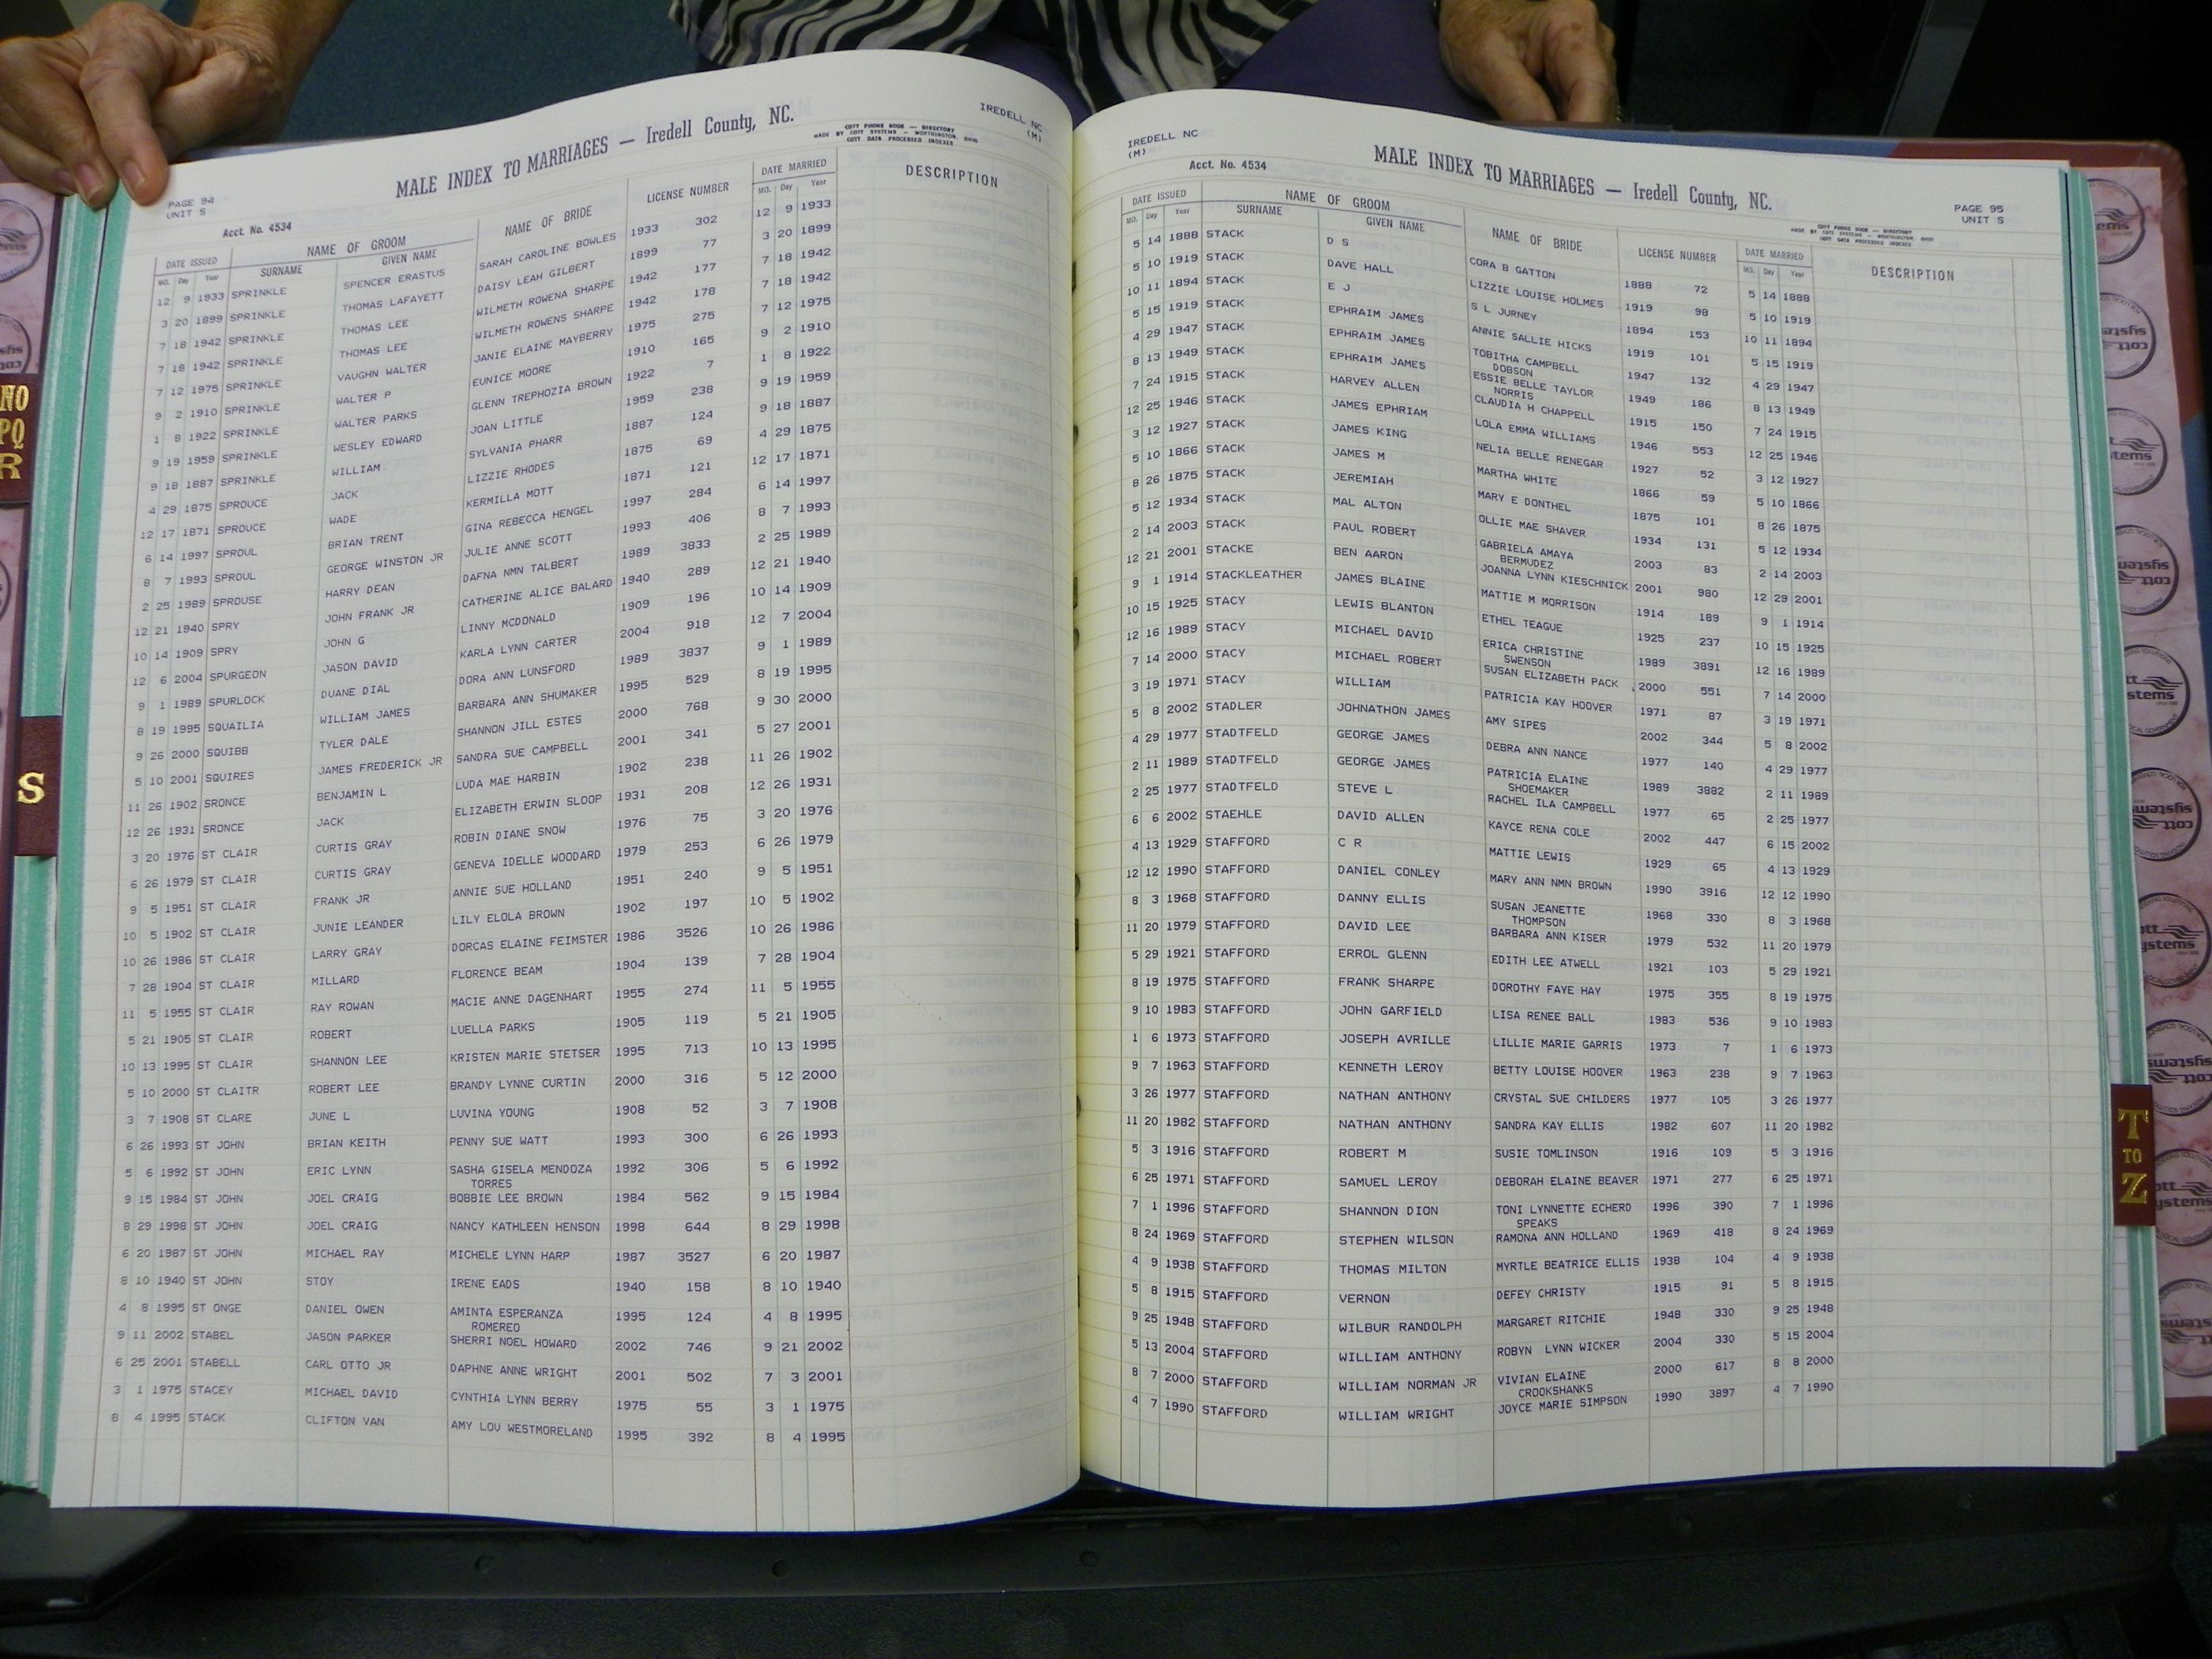 PAGE 94
UNIT S
MALE INDEX TO MARRIAGES — Iredell County, NC.
COTT PHONE BOOK — DIRECTORY
MADE BY COTT SYSTEMS — WORTHINGTON, OHIO
COTT DATA PROCESSED INDEXES
IREDELL NC
(M)
Acct. No. 4534
DATE ISSUED NAME OF GROOM NAME OF BRIDE LICENSE NUMBER DATE MARRIED DESCRIPTION
MO. Day Year SURNAME GIVEN NAME MO. Day Year
12 9 1933 SPRINKLE SPENCER ERASTUS SARAH CAROLINE BOWLES 1933 302 12 9 1933
3 20 1899 SPRINKLE THOMAS LAFAYETT DAISY LEAH GILBERT 1899 77 3 20 1899
7 18 1942 SPRINKLE THOMAS LEE WILMETH ROWENA SHARPE 1942 177 7 18 1942
7 18 1942 SPRINKLE THOMAS LEE WILMETH ROWENS SHARPE 1942 178 7 18 1942
7 12 1975 SPRINKLE VAUGHN WALTER JANIE ELAINE MAYBERRY 1975 275 7 12 1975
9 2 1910 SPRINKLE WALTER P EUNICE MOORE 1910 165 9 2 1910
1 8 1922 SPRINKLE WALTER PARKS GLENN TREPHOZIA BROWN 1922 7 1 8 1922
9 19 1959 SPRINKLE WESLEY EDWARD JOAN LITTLE 1959 238 9 19 1959
9 18 1887 SPRINKLE WILLIAM SYLVANIA PHARR 1887 124 9 18 1887
4 29 1875 SPROUCE JACK LIZZIE RHODES 1875 69 4 29 1875
12 17 1871 SPROUCE WADE KERMILLA MOTT 1871 121 12 17 1871
6 14 1997 SPROUL BRIAN TRENT GINA REBECCA HENGEL 1997 284 6 14 1997
8 7 1993 SPROUL GEORGE WINSTON JR JULIE ANNE SCOTT 1993 406 8 7 1993
2 25 1989 SPROUSE HARRY DEAN DAFNA NMN TALBERT 1989 3833 2 25 1989
12 21 1940 SPRY JOHN FRANK JR CATHERINE ALICE BALARD 1940 289 12 21 1940
10 14 1909 SPRY JOHN G LINNY MCDONALD 1909 196 10 14 1909
12 6 2004 SPURGEON JASON DAVID KARLA LYNN CARTER 2004 918 12 7 2004
9 1 1989 SPURLOCK DUANE DIAL DORA ANN LUNSFORD 1989 3837 9 1 1989
8 19 1995 SQUAILIA WILLIAM JAMES BARBARA ANN SHUMAKER 1995 529 8 19 1995
9 26 2000 SQUIBB TYLER DALE SHANNON JILL ESTES 2000 768 9 30 2000
5 10 2001 SQUIRES JAMES FREDERICK JR SANDRA SUE CAMPBELL 2001 341 5 27 2001
11 26 1902 SRONCE BENJAMIN L LUDA MAE HARBIN 1902 238 11 26 1902
12 26 1931 SRONCE JACK ELIZABETH ERWIN SLOOP 1931 208 12 26 1931
3 20 1976 ST CLAIR CURTIS GRAY ROBIN DIANE SNOW 1976 75 3 20 1976
6 26 1979 ST CLAIR CURTIS GRAY GENEVA IDELLE WOODARD 1979 253 6 26 1979
9 5 1951 ST CLAIR FRANK JR ANNIE SUE HOLLAND 1951 240 9 5 1951
10 5 1902 ST CLAIR JUNIE LEANDER LILY ELOLA BROWN 1902 197 10 5 1902
10 26 1986 ST CLAIR LARRY GRAY DORCAS ELAINE FEIMSTER 1986 3526 10 26 1986
7 28 1904 ST CLAIR MILLARD FLORENCE BEAM 1904 139 7 28 1904
11 5 1955 ST CLAIR RAY ROWAN MACIE ANNE DAGENHART 1955 274 11 5 1955
5 21 1905 ST CLAIR ROBERT LUELLA PARKS 1905 119 5 21 1905
10 13 1995 ST CLAIR SHANNON LEE KRISTEN MARIE STETSER 1995 713 10 13 1995
5 10 2000 ST CLAITR ROBERT LEE BRANDY LYNNE CURTIN 2000 316 5 12 2000
3 7 1908 ST CLARE JUNE L LUVINA YOUNG 1908 52 3 7 1908
6 26 1993 ST JOHN BRIAN KEITH PENNY SUE WATT 1993 300 6 26 1993
5 6 1992 ST JOHN ERIC LYNN SASHA GISELA MENDOZA 1992 306 5 6 1992
TORRES
9 15 1984 ST JOHN JOEL CRAIG BOBBIE LEE BROWN 1984 562 9 15 1984
8 29 1998 ST JOHN JOEL CRAIG NANCY KATHLEEN HENSON 1998 644 8 29 1998
6 20 1987 ST JOHN MICHAEL RAY MICHELE LYNN HARP 1987 3527 6 20 1987
8 10 1940 ST JOHN STOY IRENE EADS 1940 158 8 10 1940
4 8 1995 ST ONGE DANIEL OWEN AMINTA ESPERANZA 1995 124 4 8 1995
ROMEREO
9 11 2002 STABEL JASON PARKER SHERRI NOEL HOWARD 2002 746 9 21 2002
6 25 2001 STABELL CARL OTTO JR DAPHNE ANNE WRIGHT 2001 502 7 3 2001
3 1 1975 STACEY MICHAEL DAVID CYNTHIA LYNN BERRY 1975 55 3 1 1975
8 4 1995 STACK CLIFTON VAN AMY LOU WESTMORELAND 1995 392 8 4 1995
IREDELL NC
(M)
Acct. No. 4534
MALE INDEX TO MARRIAGES — Iredell County, NC.
COTT PHONE BOOK — DIRECTORY
MADE BY COTT SYSTEMS — WORTHINGTON, OHIO
COTT DATA PROCESSED INDEXES
PAGE 95
UNIT S
DATE ISSUED NAME OF GROOM NAME OF BRIDE LICENSE NUMBER DATE MARRIED DESCRIPTION
MO. Day Year SURNAME GIVEN NAME MO. Day Year
5 14 1888 STACK D S CORA B GATTON 1888 72 5 14 1888
5 10 1919 STACK DAVE HALL LIZZIE LOUISE HOLMES 1919 98 5 10 1919
10 11 1894 STACK E J S L JURNEY 1894 153 10 11 1894
5 15 1919 STACK EPHRAIM JAMES ANNIE SALLIE HICKS 1919 101 5 15 1919
4 29 1947 STACK EPHRAIM JAMES TOBITHA CAMPBELL 1947 132 4 29 1947
DOBSON
8 13 1949 STACK EPHRAIM JAMES ESSIE BELLE TAYLOR 1949 186 8 13 1949
NORRIS
7 24 1915 STACK HARVEY ALLEN CLAUDIA H CHAPPELL 1915 150 7 24 1915
12 25 1946 STACK JAMES EPHRIAM LOLA EMMA WILLIAMS 1946 553 12 25 1946
3 12 1927 STACK JAMES KING NELIA BELLE RENEGAR 1927 52 3 12 1927
5 10 1866 STACK JAMES M MARTHA WHITE 1866 59 5 10 1866
8 26 1875 STACK JEREMIAH MARY E DONTHEL 1875 101 8 26 1875
5 12 1934 STACK MAL ALTON OLLIE MAE SHAVER 1934 131 5 12 1934
2 14 2003 STACK PAUL ROBERT GABRIELA AMAYA 2003 83 2 14 2003
BERMUDEZ
12 21 2001 STACKE BEN AARON JOANNA LYNN KIESCHNICK 2001 980 12 29 2001
9 1 1914 STACKLEATHER JAMES BLAINE MATTIE M MORRISON 1914 189 9 1 1914
10 15 1925 STACY LEWIS BLANTON ETHEL TEAGUE 1925 237 10 15 1925
12 16 1989 STACY MICHAEL DAVID ERICA CHRISTINE 1989 3891 12 16 1989
SWENSON
7 14 2000 STACY MICHAEL ROBERT SUSAN ELIZABETH PACK 2000 551 7 14 2000
3 19 1971 STACY WILLIAM PATRICIA KAY HOOVER 1971 87 3 19 1971
5 8 2002 STADLER JOHNATHON JAMES AMY SIPES 2002 344 5 8 2002
4 29 1977 STADTFELD GEORGE JAMES DEBRA ANN NANCE 1977 140 4 29 1977
2 11 1989 STADTFELD GEORGE JAMES PATRICIA ELAINE 1989 3882 2 11 1989
SHOEMAKER
2 25 1977 STADTFELD STEVE L RACHEL ILA CAMPBELL 1977 65 2 25 1977
6 6 2002 STAEHLE DAVID ALLEN KAYCE RENA COLE 2002 447 6 15 2002
4 13 1929 STAFFORD C R MATTIE LEWIS 1929 65 4 13 1929
12 12 1990 STAFFORD DANIEL CONLEY MARY ANN NMN BROWN 1990 3916 12 12 1990
8 3 1968 STAFFORD DANNY ELLIS SUSAN JEANETTE 1968 330 8 3 1968
THOMPSON
11 20 1979 STAFFORD DAVID LEE BARBARA ANN KISER 1979 532 11 20 1979
5 29 1921 STAFFORD ERROL GLENN EDITH LEE ATWELL 1921 103 5 29 1921
8 19 1975 STAFFORD FRANK SHARPE DOROTHY FAYE HAY 1975 355 8 19 1975
9 10 1983 STAFFORD JOHN GARFIELD LISA RENEE BALL 1983 536 9 10 1983
1 6 1973 STAFFORD JOSEPH AVRILLE LILLIE MARIE GARRIS 1973 7 1 6 1973
9 7 1963 STAFFORD KENNETH LEROY BETTY LOUISE HOOVER 1963 238 9 7 1963
3 26 1977 STAFFORD NATHAN ANTHONY CRYSTAL SUE CHILDERS 1977 105 3 26 1977
11 20 1982 STAFFORD NATHAN ANTHONY SANDRA KAY ELLIS 1982 607 11 20 1982
5 3 1916 STAFFORD ROBERT M SUSIE TOMLINSON 1916 109 5 3 1916
6 25 1971 STAFFORD SAMUEL LEROY DEBORAH ELAINE BEAVER 1971 277 6 25 1971
7 1 1996 STAFFORD SHANNON DION TONI LYNNETTE ECHERD 1996 390 7 1 1996
SPEAKS
8 24 1969 STAFFORD STEPHEN WILSON RAMONA ANN HOLLAND 1969 418 8 24 1969
4 9 1938 STAFFORD THOMAS MILTON MYRTLE BEATRICE ELLIS 1938 104 4 9 1938
5 8 1915 STAFFORD VERNON DEFEY CHRISTY 1915 91 5 8 1915
9 25 1948 STAFFORD WILBUR RANDOLPH MARGARET RITCHIE 1948 330 9 25 1948
5 13 2004 STAFFORD WILLIAM ANTHONY ROBYN LYNN WICKER 2004 330 5 15 2004
8 7 2000 STAFFORD WILLIAM NORMAN JR VIVIAN ELAINE 2000 617 8 8 2000
CROOKSHANKS
4 7 1990 STAFFORD WILLIAM WRIGHT JOYCE MARIE SIMPSON 1990 3897 4 7 1990
NO
PQ
R
S
T
TO
Z